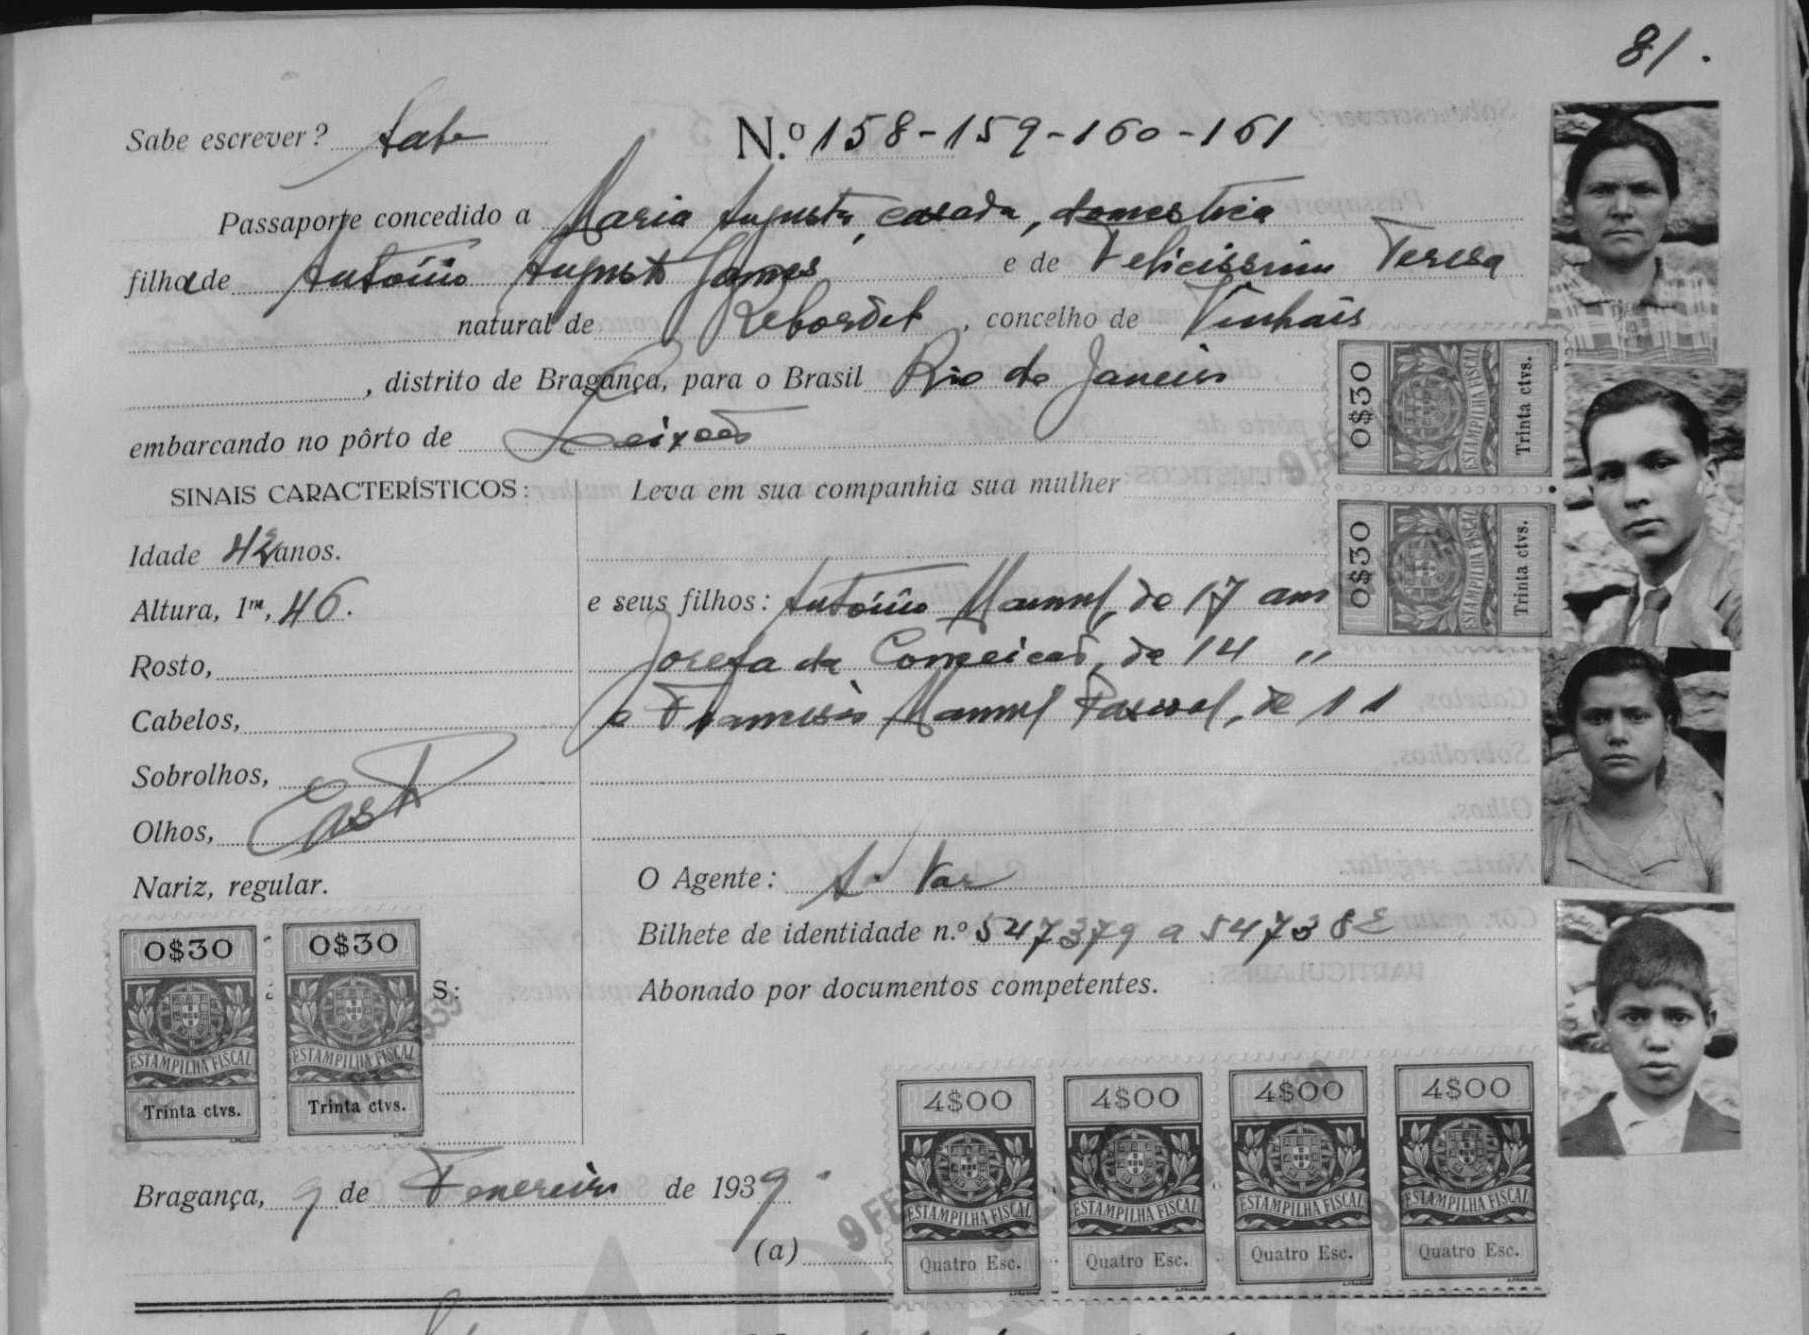 81.
Sabe escrever? Sabe Nº 158-159-160-161
Passaporte concedido a Maria Augusta, casada, domestica
filha de António Augusto Gomes e de Felicissima Teresa
natural de Rebordelo, concelho de Vinhais
, distrito de Bragança, para o Brasil Rio de Janeiro
embarcando no pôrto de Leixões
SINAIS CARACTERÍSTICOS: Leva em sua companhia sua mulher
Idade 42 anos.
Altura, 1m, 46. e seus filhos: António Manuel, de 17 anos
Rosto, Josefa da Conceicão, de 14 "
Cabelos, e Francisco Manuel Pascoal, de 11
Sobrolhos, Cast
Olhos,
Nariz, regular. O Agente: A. Vaz
Bilhete de identidade n.º 547379 a 547382
S: Abonado por documentos competentes.
0$30 ESTAMPILHA FISCAL Trinta ctvs.
0$30 ESTAMPILHA FISCAL Trinta ctvs.
0$30 ESTAMPILHA FISCAL Trinta ctvs.
0$30 ESTAMPILHA FISCAL Trinta ctvs.
4$00 4$00 4$00 4$00
ESTAMPILHA FISCAL ESTAMPILHA FISCAL ESTAMPILHA FISCAL ESTAMPILHA FISCAL
Quatro Esc. Quatro Esc. Quatro Esc. Quatro Esc.
Bragança, 9 de Fevereiro de 1939.
(a)